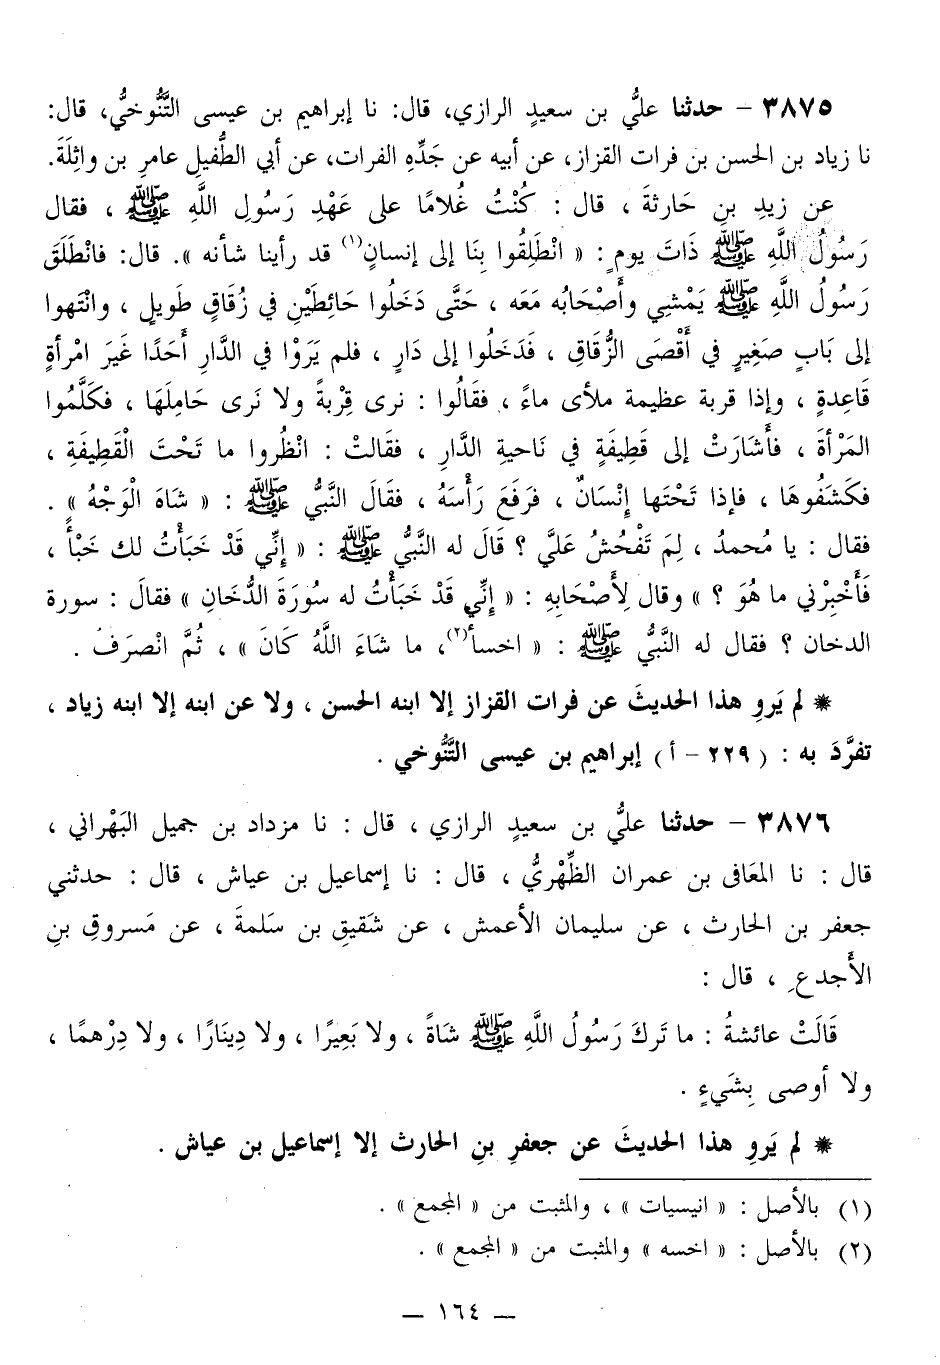 ٣٨٧٥ - حدثنا عليُّ بن سعيدٍ الرازي، قال: نا إبراهيم بن عيسى التَّنُّوخيُّ، قال:
نا زياد بن الحسن بن فرات القزاز، عن أبيه عن جَدِّهِ الفرات، عن أبي الطُّفيلِ عامرِ بن واثِلَةَ.
عن زيدِ بنِ حَارثةَ ، قال : كُنْتُ غُلامًا على عَهْدِ رَسُولِ اللَّهِ ﷺ ، فقال
رَسُولُ اللَّهِ ﷺ ذَاتَ يومٍ : « انْطَلِقُوا بِنَا إلى إنسانٍ(١) قد رأينا شأنه ». قال: فانْطَلَقَ
رَسُولُ اللَّهِ ﷺ يَمْشِي وأَصْحَابُه مَعَه ، حَتَّى دَخَلُوا حَائِطَيْنِ في زُقَاقٍ طَويلٍ ، وانْتَهوا
إلى بَابٍ صَغِيرٍ في أَقْصَى الزُّقَاقِ ، فَدَخَلُوا إلى دَارٍ ، فلم يَرَوْا في الدَّارِ أَحَدًا غَيرَ امْرأةٍ
قَاعِدةٍ ، وإذا قربة عظيمة ملأى ماءً ، فقَالُوا : نرى قِرْبةً ولا نَرى حَامِلَهَا ، فكَلَّمُوا
المَرْأةَ ، فأَشَارَتْ إلى قَطِيفَةٍ في نَاحيةِ الدَّارِ ، فقَالتْ : انْظُروا ما تَحْتَ الْقَطِيفَةِ ،
فكَشَفُوهَا ، فإذا تَحْتَها إِنْسَانٌ ، فرَفَعَ رَأْسَهُ ، فقَالَ النَّبيُّ ﷺ : « شَاهَ الْوَجْهُ » .
فقال : يا مُحمدُ ، لِمَ تَفْحُشُ عَلَيَّ ؟ قَالَ له النَّبيُّ ﷺ : « إِنِّي قَدْ خَبَأْتُ لك خَبْأً ،
فَأَخْبِرْني ما هُوَ ؟ » وقال لِأَصْحَابِهِ : « إِنِّي قَدْ خَبَأْتُ له سُورَةَ الدُّخَانِ » فقالَ : سورة
الدخان ؟ فقال له النَّبيُّ ﷺ : « اخسأ(٢)، ما شَاءَ اللَّهُ كَانَ » ، ثُمَّ انْصرَفَ .
* لم يَروِ هذا الحديثَ عن فرات القزاز إلا ابنه الحسن ، ولا عن ابنه إلا ابنه زياد ،
تفرَّدَ به : ( ٢٢٩ - أ ) إبراهيم بن عيسى التَّنُّوخي .
٣٨٧٦ - حدثنا عليُّ بن سعيدٍ الرازي ، قال : نا مزداد بن جميل البَهْراني ،
قال : نا المعَافى بن عمران الظِّهْرِيُّ ، قال : نا إسماعيل بن عياش ، قال : حدثني
جعفر بن الحارث ، عن سليمان الأعمش ، عن شَقيقِ بن سَلمةَ ، عن مَسروقِ بنِ
الأَجدعِ ، قال :
قَالَتْ عائشةُ : ما تَركَ رَسُولُ اللَّهِ ﷺ شَاةً ، ولا بَعِيرًا ، ولا دِينَارًا ، ولا دِرْهمًا ،
ولا أوصى بِشَيءٍ .
* لم يَروِ هذا الحديثَ عن جعفرِ بنِ الحارث إلا إسماعيل بن عياش .
(١) بالأصل : « انيسيات » ، والمثبت من « المجمع » .
(٢) بالأصل : « اخسه » والمثبت من « المجمع » .
— ١٦٤ —